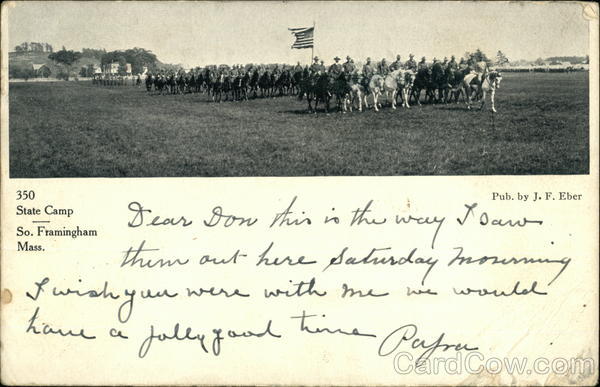 350
State Camp
So. Framingham
Mass.
Pub. by J. F. Eber
Dear Don this is the way I saw
them out here Saturday Mornning
I wish you were with me we would
have a jolly good time
CardCow.com